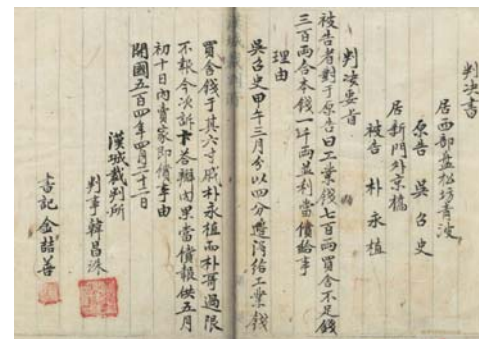 判决書
居西部盘松坊青波
原告 吳召史
居新門外京橋
被告 朴永植
判决要旨
被告者對于原告曰工業錢七百兩買舍不足錢
三百兩合本錢一千兩並利當償給事
理由
吳召史甲午三月分以四分邊得給工業錢
買舍錢于其六寸戚朴永植而朴哥過限
不報今次訴卞答辯內果當償報供五月
初十日內賣家即償事由
開國五百四年四月二十二日
漢城裁判所
判事韓昌洙
書記金喆善